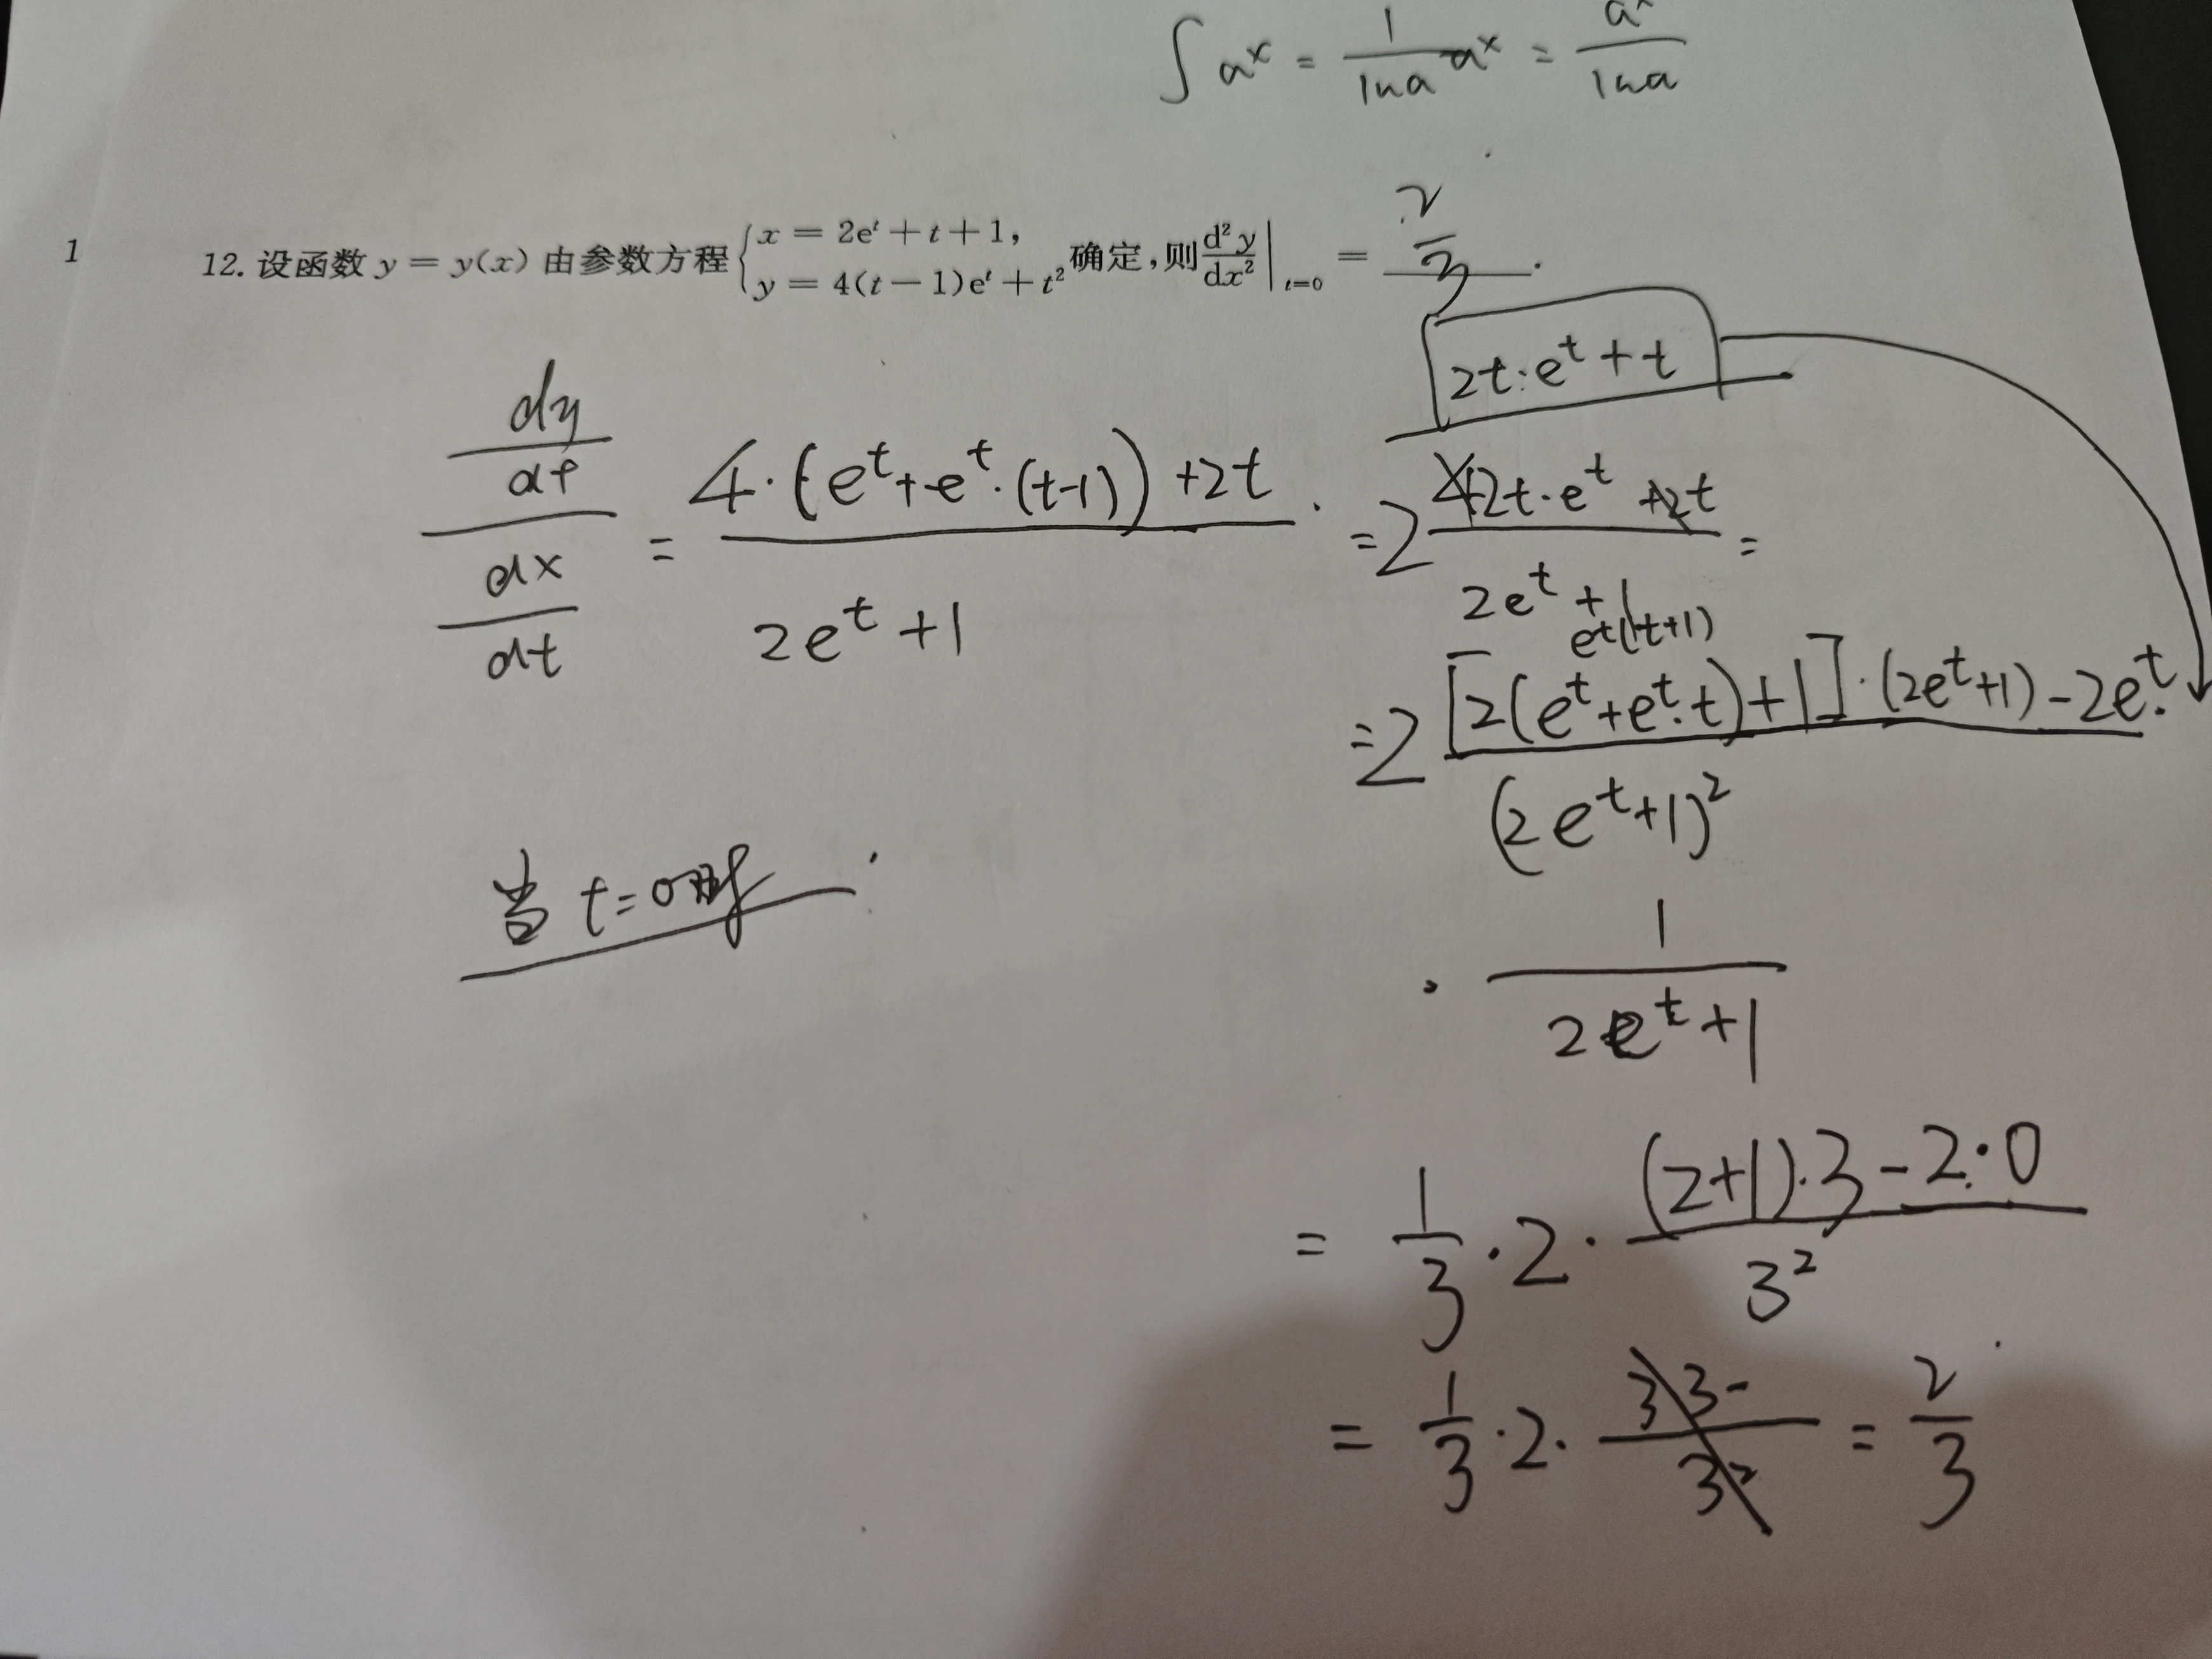 ∫ aˣ = 1/lna aˣ = aˣ/lna
1
12. 设函数 y = y(x) 由参数方程 { x = 2eᵗ + t + 1, y = 4(t − 1)eᵗ + t² 确定,则 d²y/dx² |ₜ₌₀ = 2/3 .
2t·eᵗ + t
dy/dt / dx/dt = 4·(eᵗ + eᵗ·(t-1)) + 2t / 2eᵗ + 1 = 2 2t·eᵗ + t / 2eᵗ + 1 =
eᵗ(t+1)
= 2 [2(eᵗ + eᵗ·t) + 1]·(2eᵗ + 1) − 2eᵗ· / (2eᵗ + 1)²
当 t = 0时
· 1 / 2eᵗ + 1
= 1/3 · 2 · (2+1)·3 − 2·0 / 3²
= 1/3 · 2 · 3 3 - / 3² = 2/3